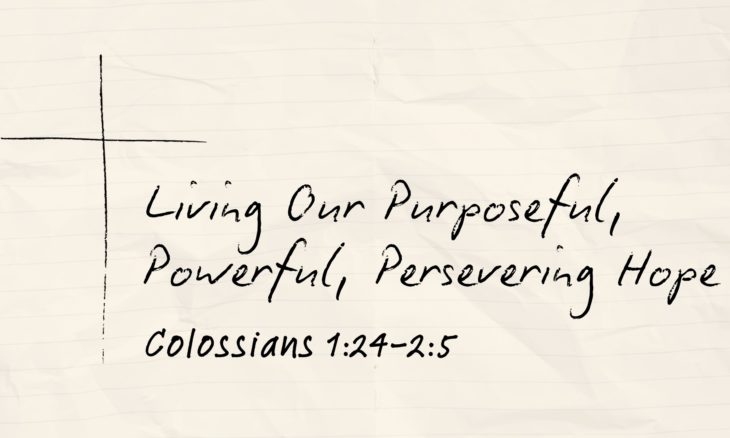 Living Our Purposeful,
Powerful, Persevering Hope
Colossians 1:24-2:5